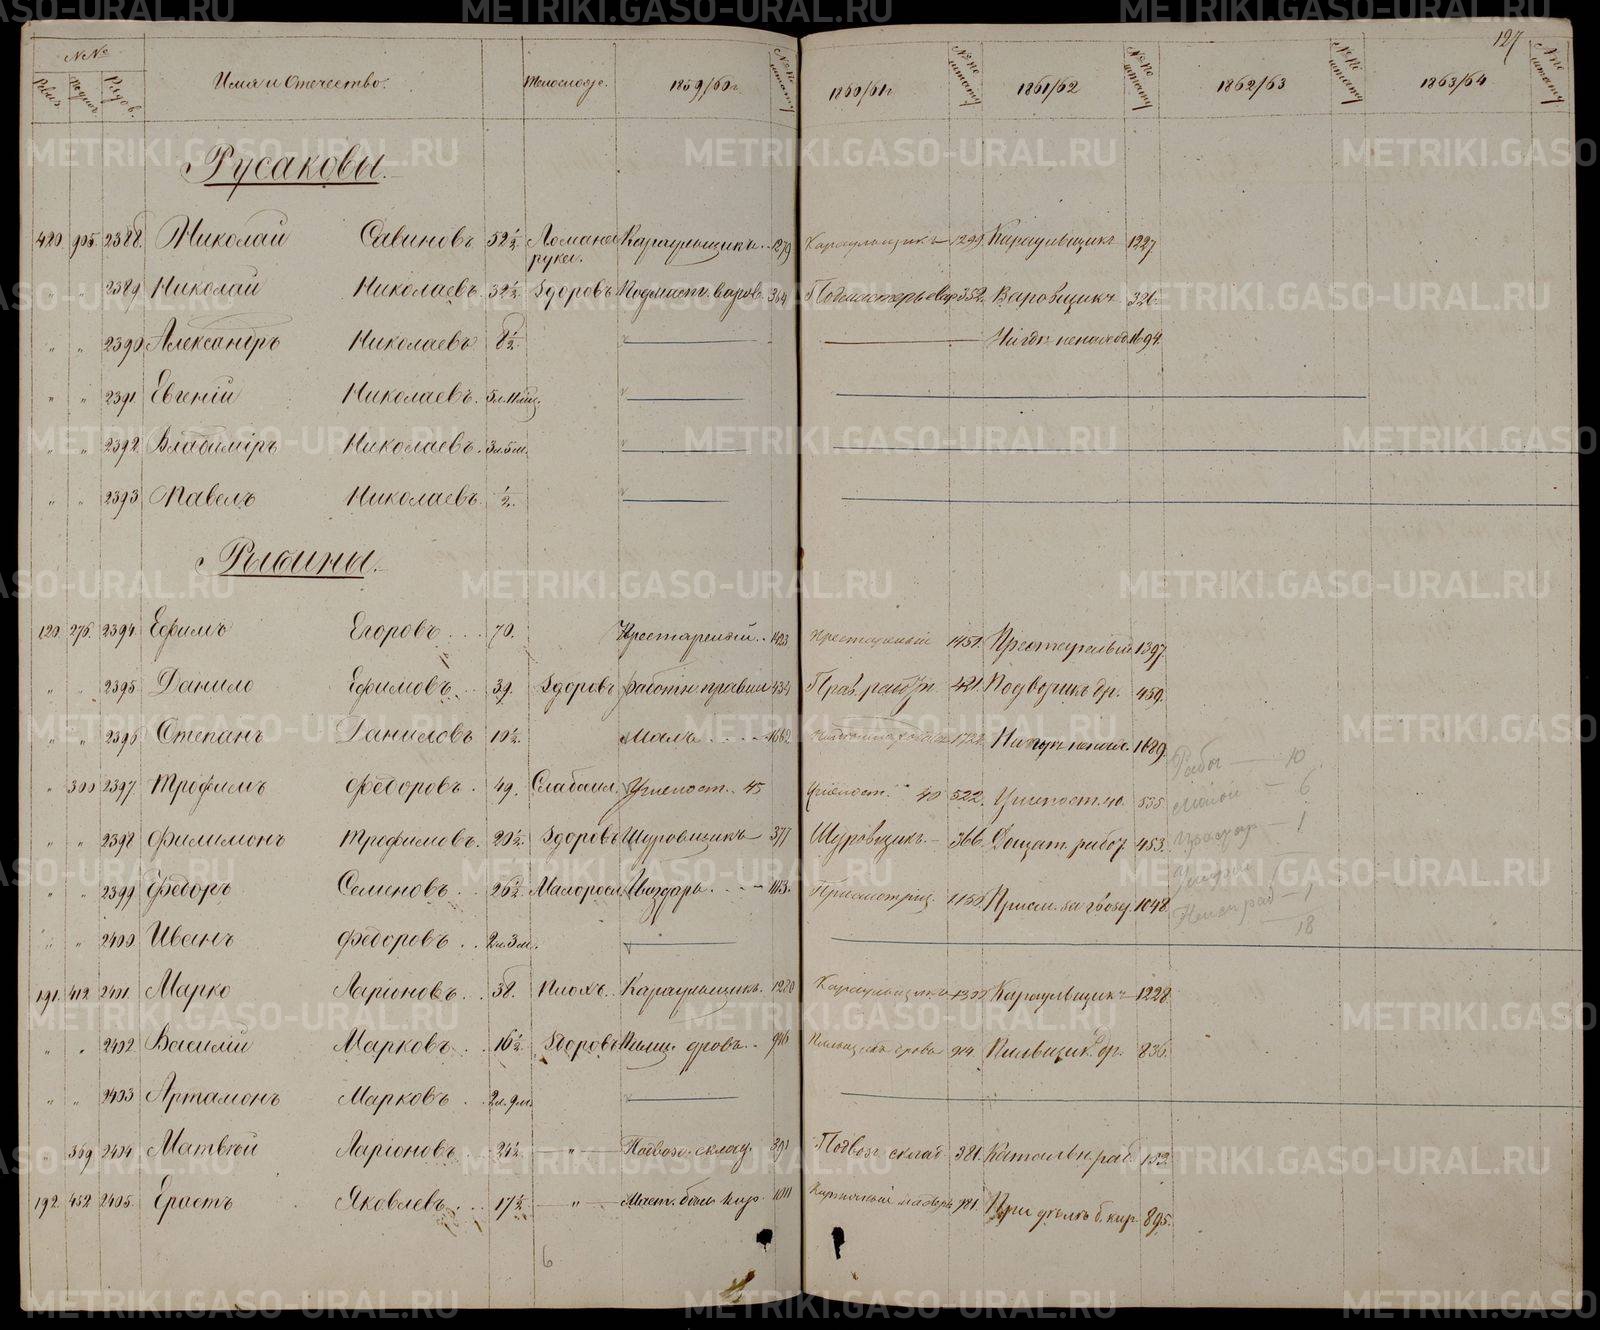 127
№№
Ревиз. Рядов.
Имя и Отечество. Телослож. 1859/60 г. №№ по штату 1860/61 г №№ по штату 1861/62 №№ по штату 1862/63 №№ по штату 1863/64 №№ по штату
Русаковы.
420 905 2388 Николай Савиновъ 52½ Ломаная рука. Караульщикъ 1279 Караульщикъ 1299 Караульщикъ 1227
" " 2389 Николай Николаевъ 32½ Здоровъ Подмаст. варов. 364 352 Варовщикъ 326
" " 2390 Александръ Николаевъ 8½ 1694
" " 2391 Евгеній Николаевъ 5 л. 11 мц.
" " 2392 Владиміръ Николаевъ 3 л. 5 м.
" " 2393 Павелъ Николаевъ ½
Рыбины.
120 276 2394 Ефимъ Егоровъ 70. Престарелой 1423 Престарелой 1450 Престарелый 1397
" " 2395 Данило Ефимовъ 39. Здоровъ 434 421 Подвозчикъ др. 459
" " 2396 Степанъ Даниловъ 10½ Малъ 1662 1722 1689
" 300 2397 Трофимъ Федоровъ 49. Слабаил. Углепост. 45 Углепост. 40 522 Углепост. 40. 535
" " 2398 Филимонъ Трофимовъ 20½ Здоровъ Шуровщикъ 377 Шуровщикъ 366 Дощат. работ 453
" " 2399 Федоръ Семеновъ 26½ Малоросл. 1113 1150 Присм. за гвозд. 1048
" " 2400 Иванъ Федоровъ 2 л. 3 м.
191 412 2401 Марко Ларіоновъ 38. Плохъ. Караульщикъ 1280 Караульщикъ 1300 Караульщикъ 1228
" " 2402 Василій Марковъ 16½ Здоровъ Пильщ. дровъ 946 Пильщикъ дровъ 914 Пильщикъ др. 836
" " 2403 Артамонъ Марковъ 2 л. 9 м.
" 369 2404 Матвѣй Ларіоновъ 24½ " Подвоз. склад. 391 Подвоз склад 381 Катальн. раб. 133
192 452 2405 Ерастъ Яковлевъ 17½ " 1011 981 При дѣлѣ б. кир. 895
Работ 10
6
1
1
18
6
METRIKI.GASO-URAL.RU